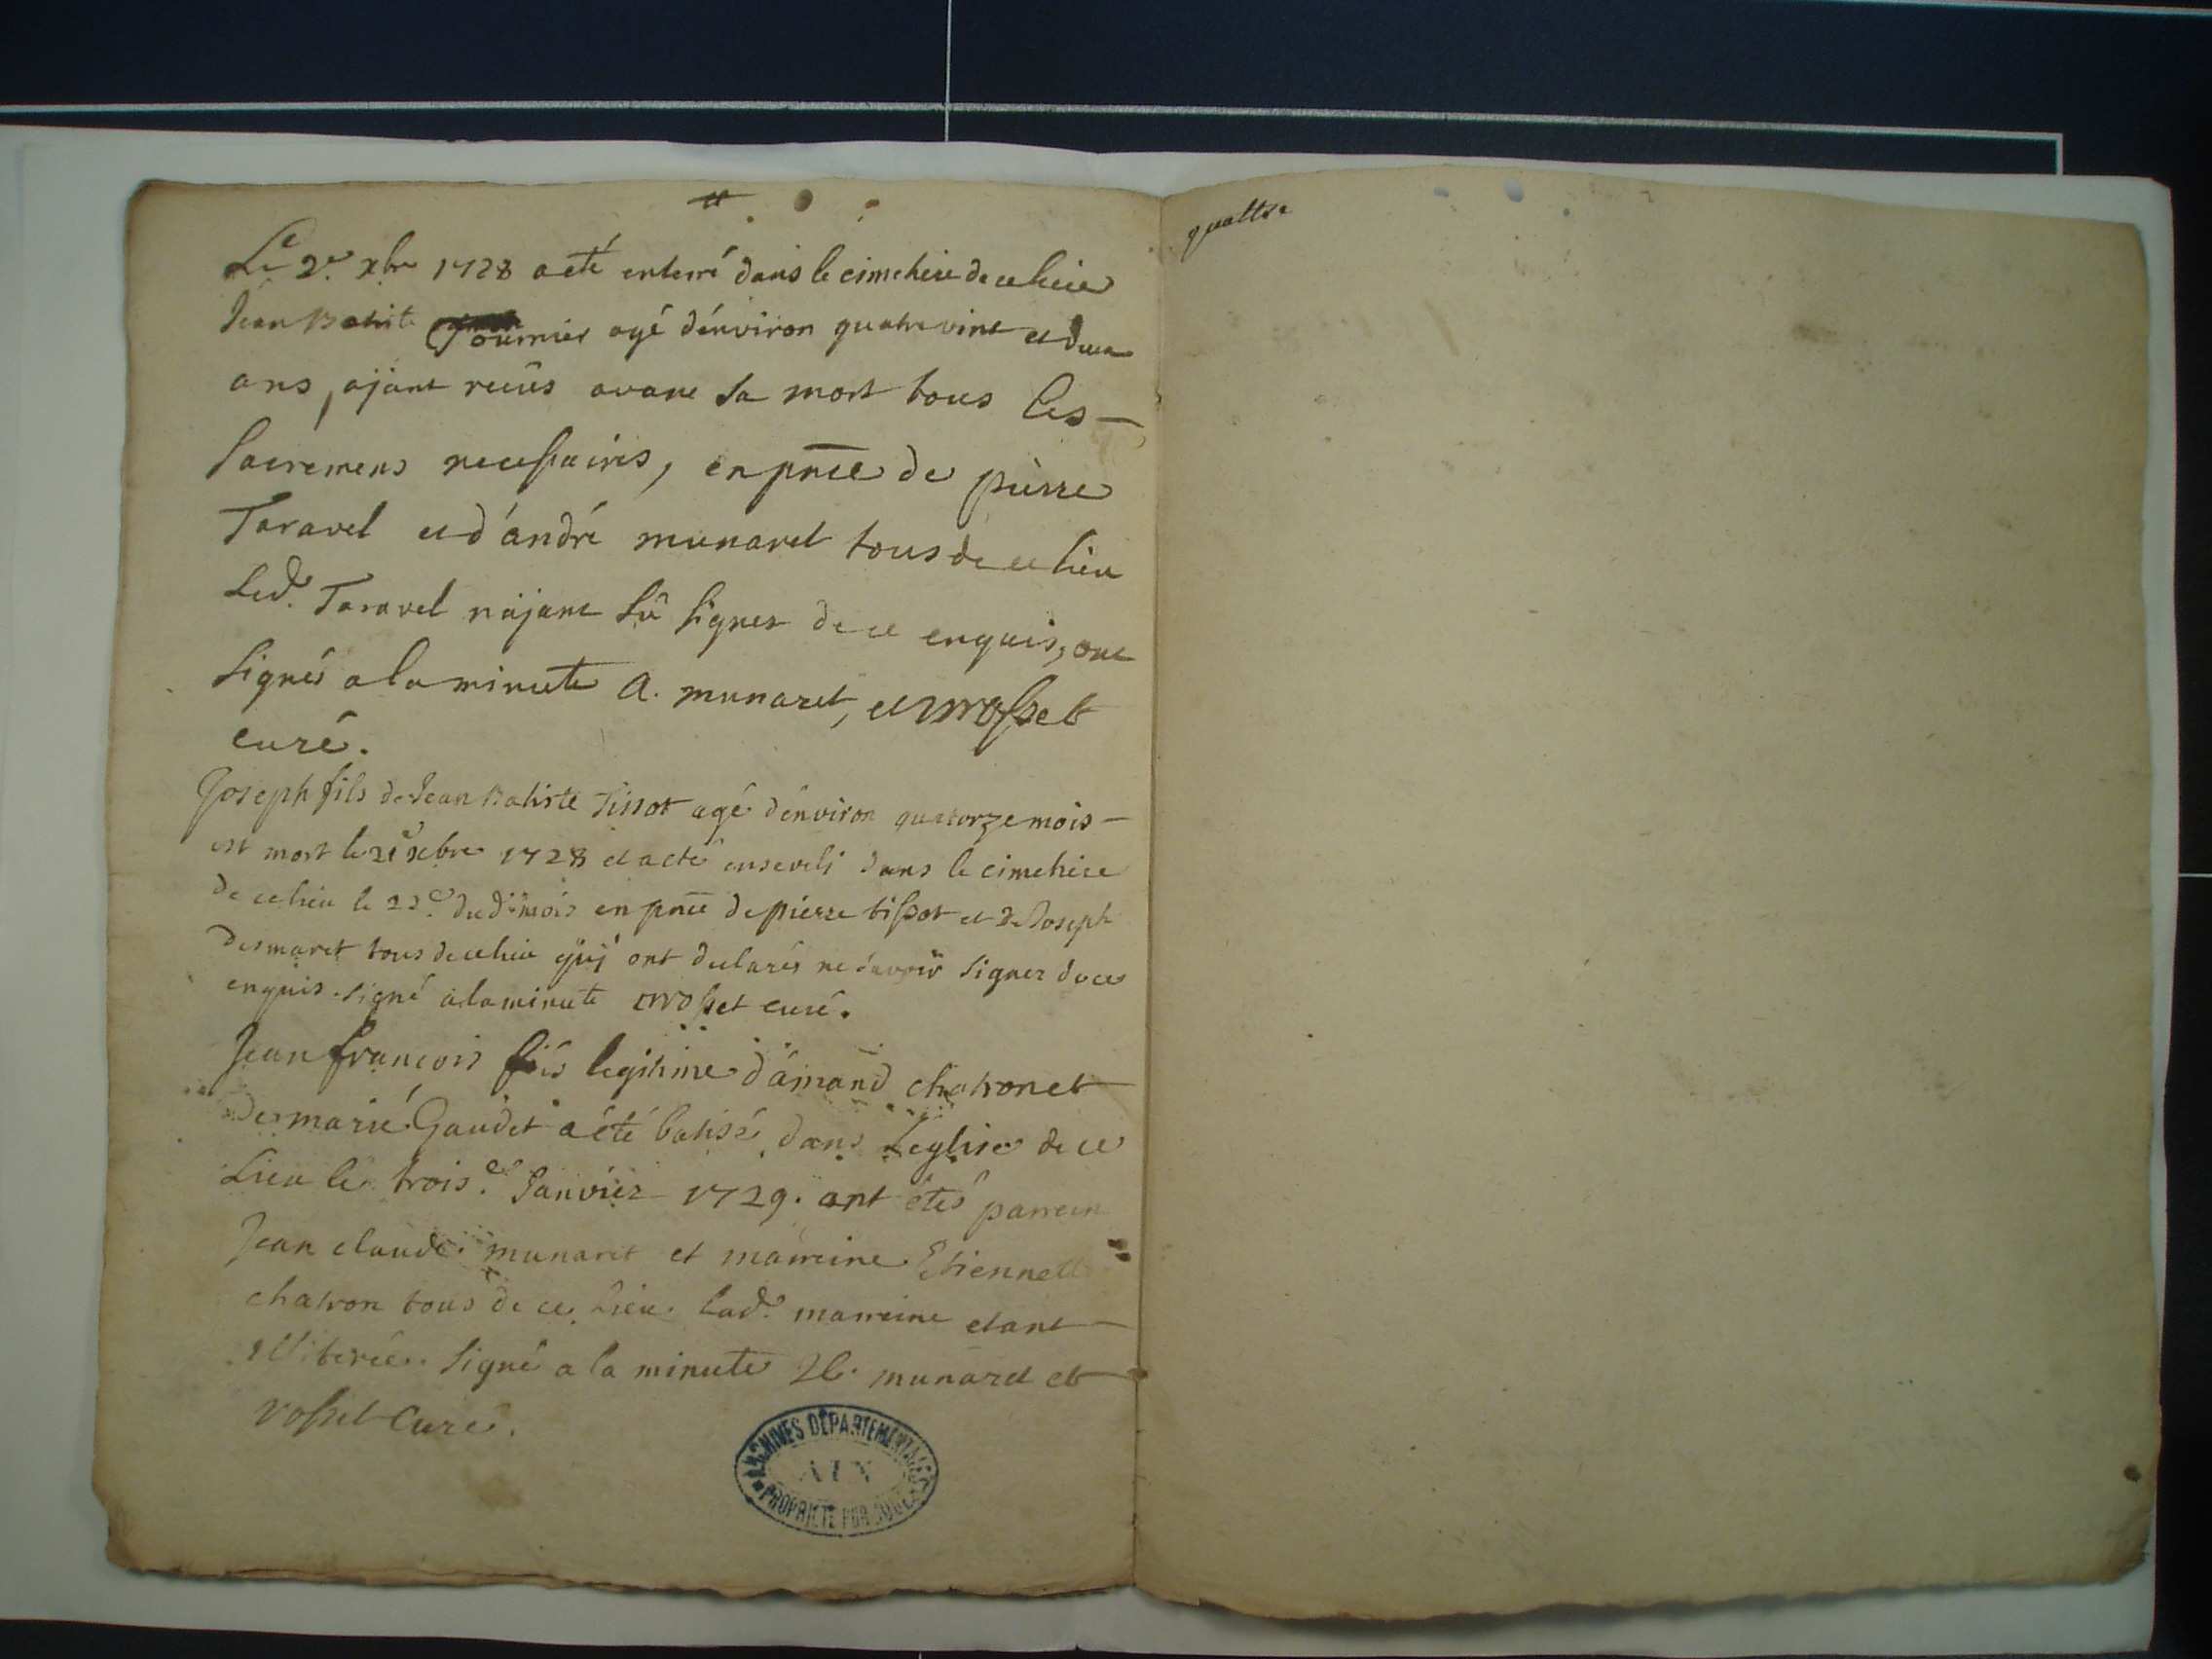 Le 2.e xbre 1728 a eté enterré dans le cimetiere de ce lieu
Jean Batiste Fournier agé d'énviron quatrevint et deux
ans, ajant reçus avant sa mort tous les
sacremens necessaires, en pnce de pierre
Taravel et d'ándré munaret tous de ce lieu
Led. Taravel n'ajant sû signer de ce enquis, ont
signés a la minute A. munaret, et rosset
curé.
Joseph fils de Jean Batiste Tissot agé d'énviron quatorze mois
est mort le 21e xbre 1728 et a eté enseveli dans le cimetiere
de ce lieu le 22.e dud. mois en pnce de pierre tissot et de Joseph
desmaret tous de ce lieu quj ont declarés ne savoir signer de ce
enquis. signé a la minute rosset curé.
Jean françois fils legitime d'ámand chatronet
de marie Gaudet a été batisé dans Leglise de ce
Lieu le trois.e Janvier 1729. ont étés parrein
Jean claude munaret et marreine Etiennette
chatron tous de ce Lieu lad. marreine etant
illiterée. signé a la minute munaret et
rosset Curé.
ARCHIVES DÉPARTEMENTALES
AIN
PROPRIÉTÉ PUBLIQUE
quattre